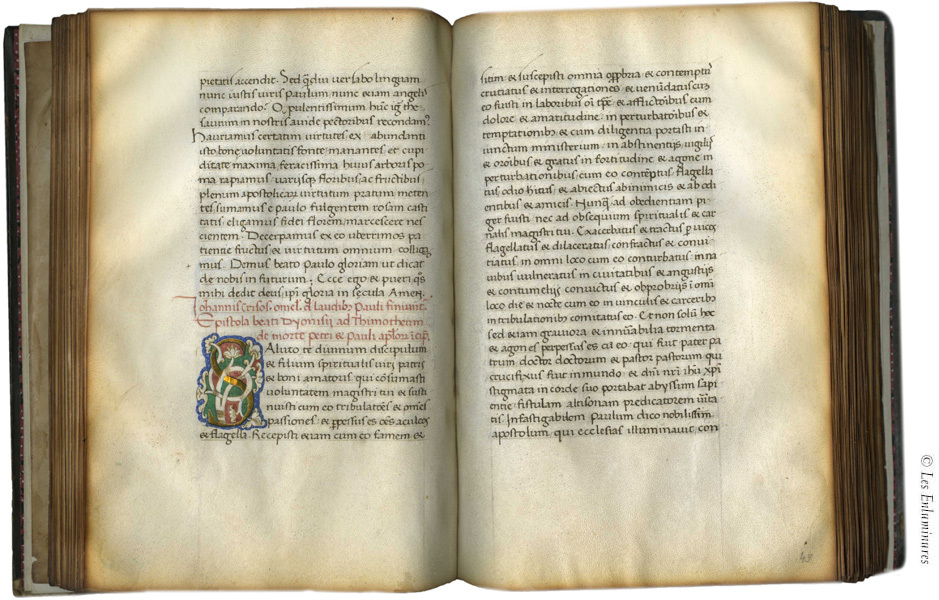 pietatis accendit. Sed q̄diu verbabo linguam
nunc iustis viris Paulum, nunc etiam angelis
comparando. O pulentissimum hūc igr̄ the-
saurum in nostris avide pectoribus recondam᷒
Hauriamus certatim virtutes ex abundanti
isto bone voluntatis fonte manantes et cupi
ditate maxima feracissima huius arboris po-
ma rapiamus variisq; floribus, ac fructibus
plenum apostolicarum virtutum pratum meten
tes sumamus e paulo fulgentem rosam casti
tatis eligamus fidei florem marcescere nes
cientem. Decerpamus ex eo uberrimos pa
tientie fructus & virtutum omnium colliga
mus. Demus beato Paulo gloriam ut dicat
de nobis in futurum: Ecce ego & pueri q̄s
mihi dedit deus, ip̄i gloria in secula Amen.
Iohannis Crisos. omel. d̄ laudib; Pauli finiunt.
Epistola beati Dyonisii ad Thimotheum
de morte Petri & Pauli ap̄lor̄
Saluto te divinum discipulum
& filium spiritualis viri, patris
& boni amatoris qui cōsumasti
voluntatem magistri tui & susti
nuisti cum eo tribulatōes & om̄es
passiones & perpessus es oēs aculeos
& flagella. Accepisti etiam cum eo famem &
sitim & suscepisti omnia opprobria & contemptū
cruciatus & interrogationes & venūdatus cum
eo fuisti in laboribus oī tp̄e & afflictōibus cum
dolore & amaritudine in perturbatōibus &
temptationib; & cum diligentia portasti in
iunctum ministerium in abstinentijs, vigilijs
& orōibus & gratus in fortitudine & agone in
perturbationibus cum eo contēptus, flagella
tus odio hitus & abiectus ab inimicis & ab odi
entibus & amicis. Nunq̄ ad obedientiam pi-
ger fuisti nec ad obsequium spiritualis & car
nalis magistri tui. Exacerbatus & tractus p vicos
flagellatus & dilaceratus confractus & convi
tiatus in omni loco cum eo conturbatus in na
vibus vulneratus in civitatibus & angustijs
& contumelijs convictus & obprobrijs ī omī
loco die & nocte cum eo in vinculis & carcerib;
in tribulationibus comitatus eo. Et non solū hoc
sed etiam graviora & innūabilia tormenta
& agones perpessus es cū eo qui fuit pater pa
trum doctor doctorum & pastor pastorum qui
crucifixus fuit in mundo & dn̄i nr̄i ihū xpī
stigmata in corde suo portabat abyssum sapi
entie fistulam altisonam predicatorem v̄ita
tis Infastigabilem Paulum dico nobilissim̄
apostolum, qui ecclesias illuminavit, con
43
© Les Enluminures